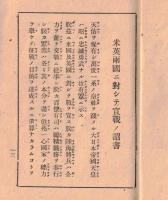 米英兩國ニ對シテ宣戰ノ詔書
天佑ヲ保有シ萬世一系ノ皇祚ヲ踐メル大日本帝國天皇
ハ昭ニ忠誠勇武ナル汝有衆ニ示ス
朕茲ニ米國及英國ニ對シテ戰ヲ宣ス朕カ陸海將兵ハ全
力ヲ奮テ交戰ニ從事シ朕カ百僚有司ハ勵精職務ヲ奉行
シ朕カ衆庶ハ各其ノ本分ヲ盡シ億兆一心國家ノ總力
ヲ擧ケテ征戰ノ目的ヲ達成スルニ遺算ナカラムコトヲ